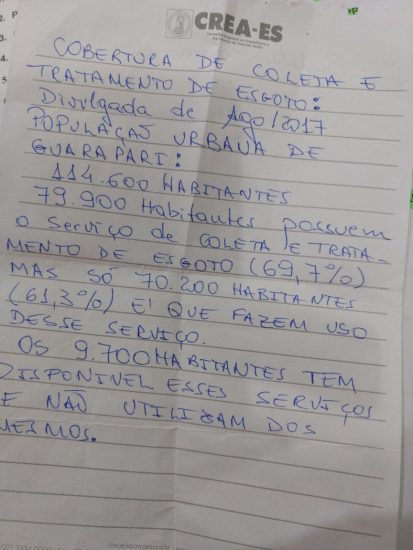 CREA-ES
COBERTURA DE COLETA E
TRATAMENTO DE ESGOTO:
Divulgada de Ago/2017
POPULAÇÃO URBANA DE
GUARAPARI:
114.600 HABITANTES
79.900 Habitantes possuem
o serviço de COLETA E TRATA-
MENTO DE ESGOTO (69,7%)
MAS SÓ 70.200 HABITANTES
(61,3%) É QUE FAZEM USO
DESSE SERVIÇO.
OS 9.700 HABITANTES TEM
DISPONIVEL ESSES SERVIÇOS
E NÃO UTILIZAM DOS
MESMOS.